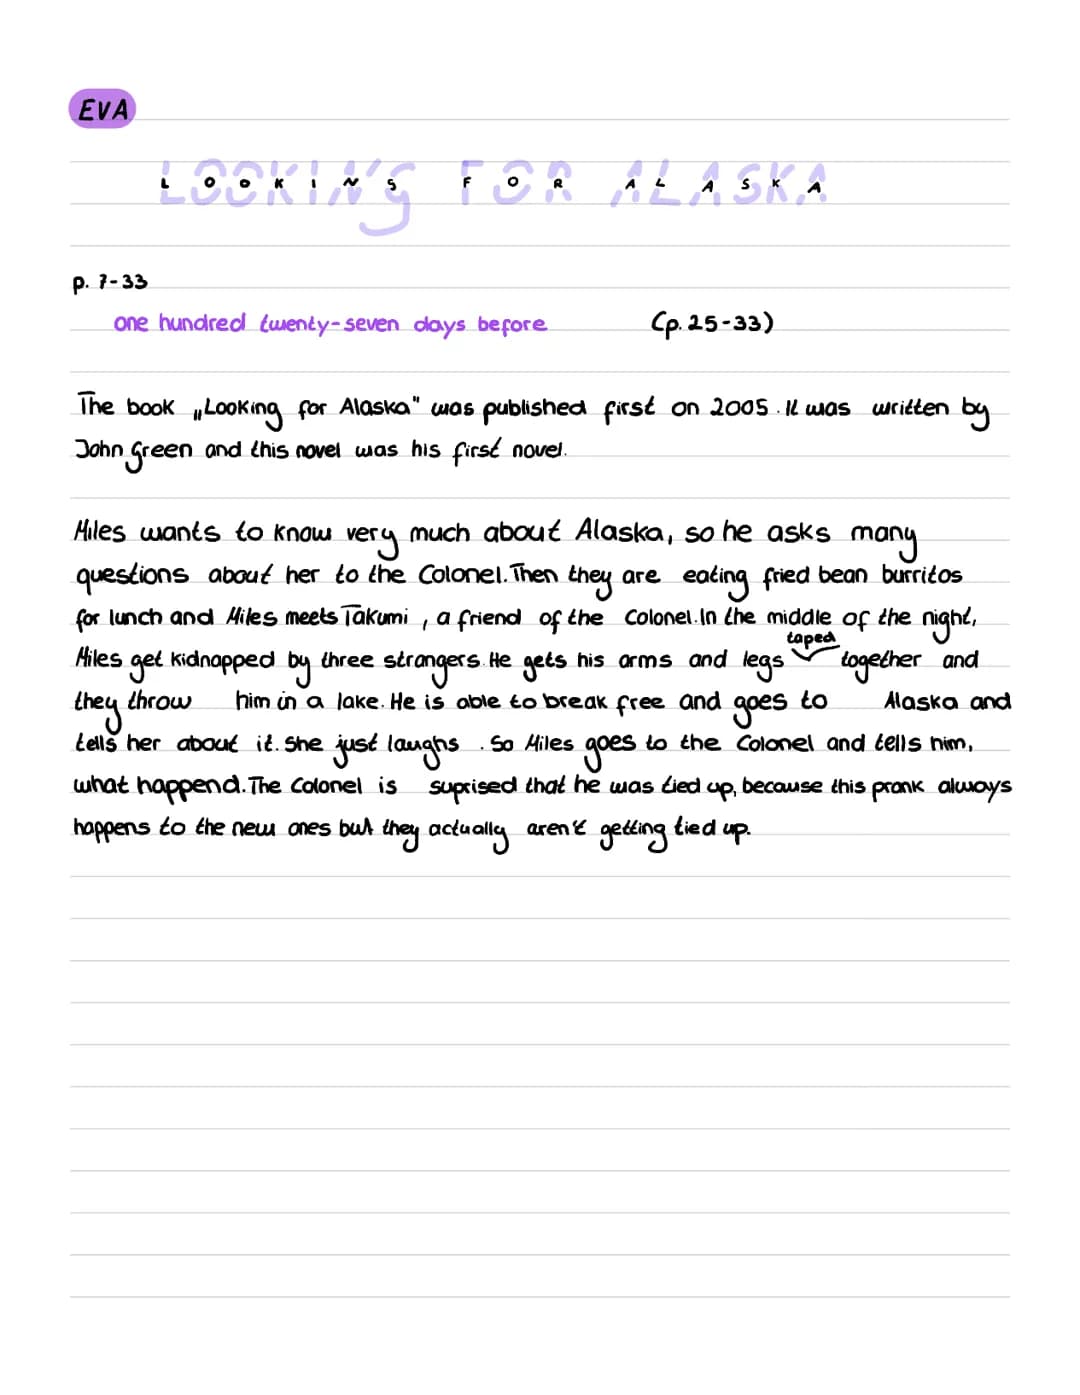 EVA
LOOKING FOR ALASKA
p. 7-33
one hundred twenty-seven days before (p. 25-33)
The book „Looking for Alaska" was published first on 2005. It was written by
John Green and this novel was his first novel.
Miles wants to know very much about Alaska, so he asks many
questions about her to the Colonel. Then they are eating fried bean burritos
for lunch and Miles meets Takumi, a friend of the Colonel. In the middle of the night,
Miles get kidnapped by three strangers. He gets his arms and legs taped together and
they throw him in a lake. He is able to break free and goes to Alaska and
tells her about it. She just laughs. So Miles goes to the Colonel and tells him,
what happend. The Colonel is suprised that he was tied up, because this prank always
happens to the new ones but they actually aren't getting tied up.